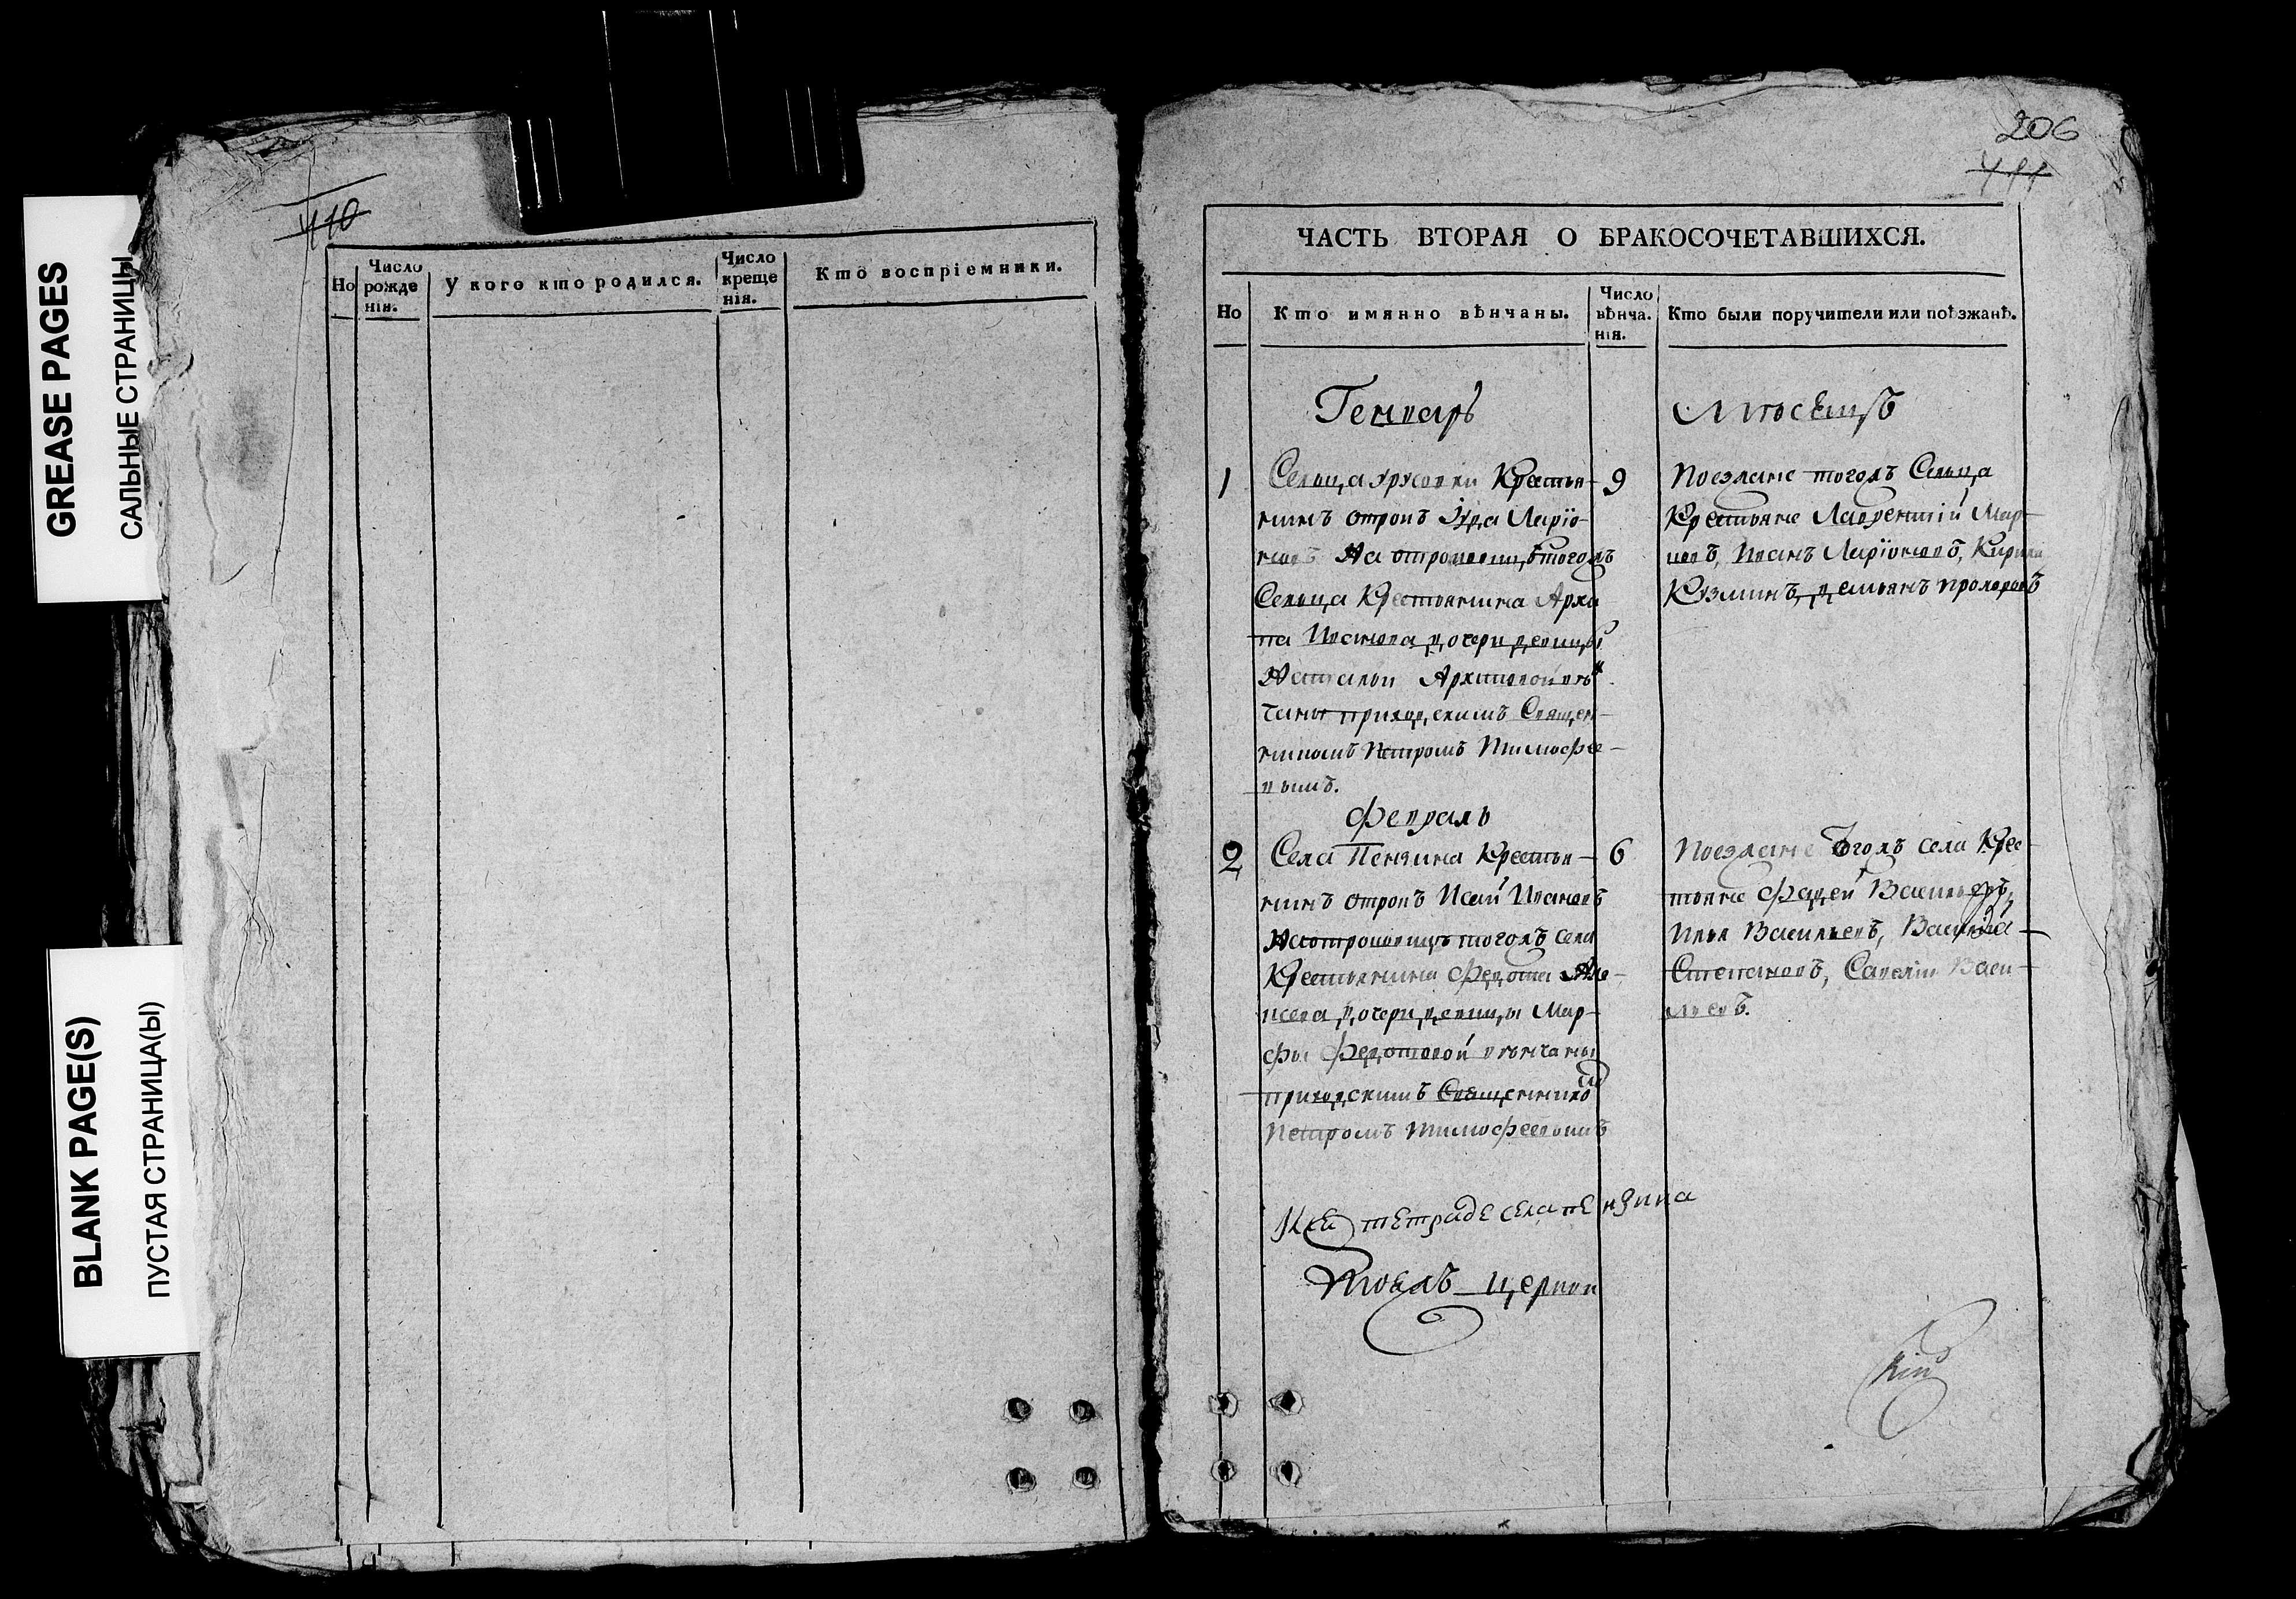 GREASE PAGES
САЛЬНЫЕ СТРАНИЦЫ
BLANK PAGE(S)
ПУСТАЯ СТРАНИЦА(Ы)
410
Но
Число рожде нія.
У кого кто родился.
Число креще нія.
Кто воспріемники.
206
411
ЧАСТЬ ВТОРАЯ О БРАКОСОЧЕТАВШИХСЯ.
Но
Кто имянно вѣнчаны.
Число вѣнча. нія.
Кто были поручители или поѣзжанѣ.
Генварь
Мѣсецъ
1
Сельца Крестья-
нинъ отрокъ Ларіо-
новъ На отроковицѣ тогожъ
Сельца Крестьянина Архи
па Иванова дочери девицы
Натальи Архиповой вѣн
чаны приходскимъ Священ-
никомъ Петромъ Тимофее-
вымъ.
9
Поезжане тогожъ Сельца
Крестьяне Лаврентій Мар-
ковъ, Иванъ Ларіоновъ, Кирила
Кузминъ, демьянъ прохоровъ
Февраль
2
Села Пензина Крестья-
нинъ отрокъ Исай Ивановъ
На отроковицѣ тогожъ села
Крестьянина Федота
дочери девицы Мар-
фы Федотовой вѣнчаны
приходскимъ Священникомъ
Петромъ Тимофеевымъ
6
Поезжане тогожъ села Крес
тьяне Фадей Васильевъ,
Илья Васильевъ, Василей
Степановъ, Савелій Васи-
льевъ.
Ксей тетраде села пензина
церкви